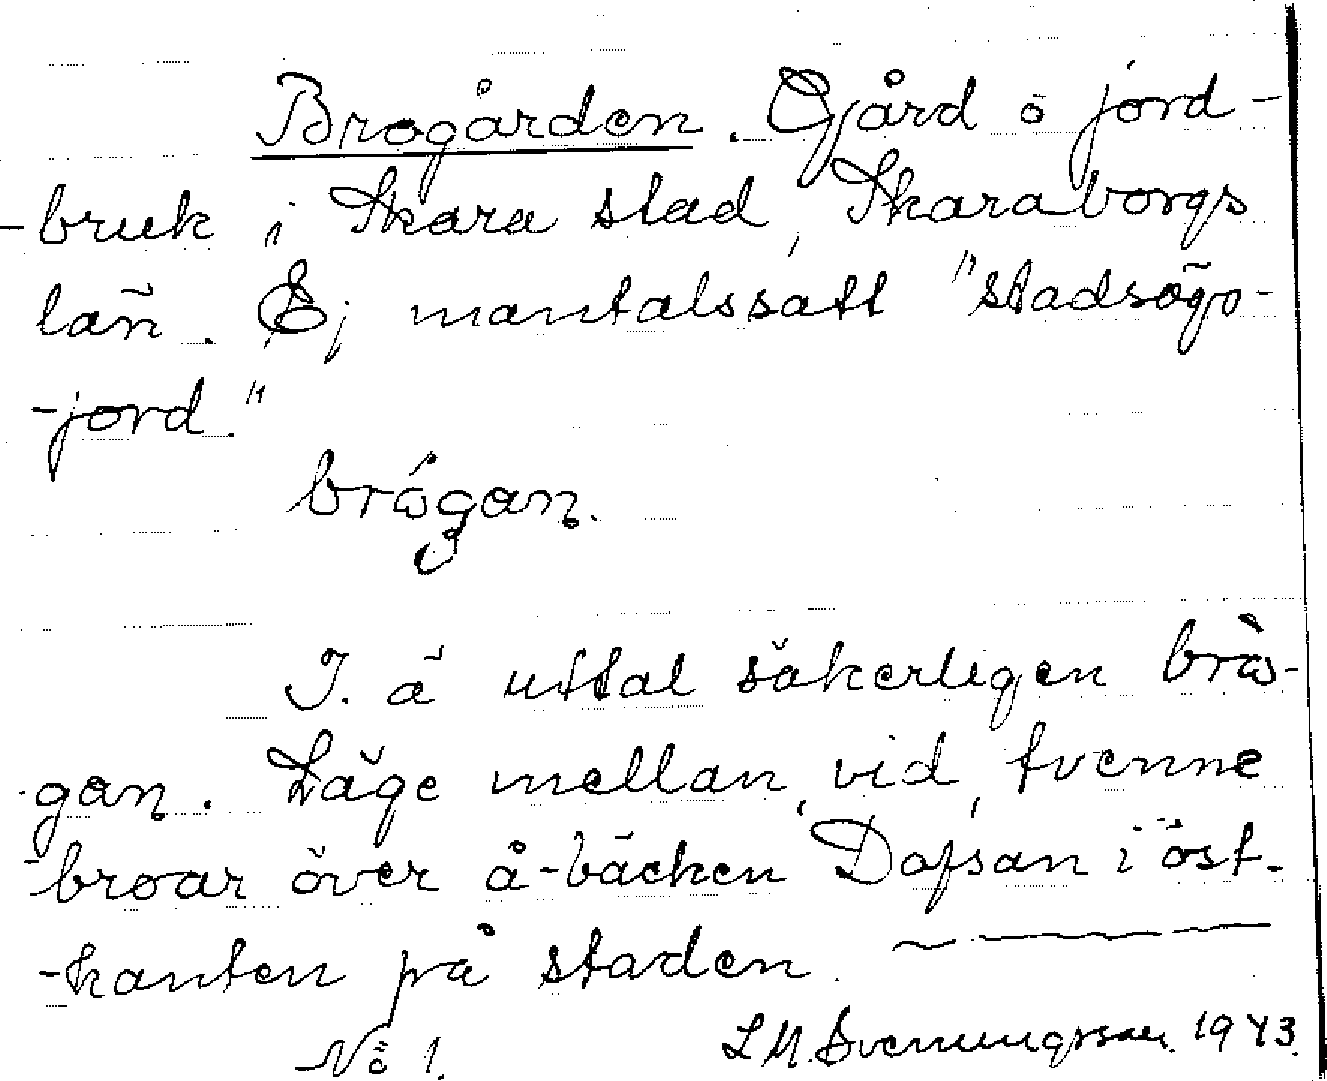 Brogården. Gård o jord-
-bruk i Skara stad, Skaraborgs
län. Ej mantalssatt "stadsägo-
-jord."
brógan.
I. ä uttal säkerligen brò-
gan. Läge mellan, vid, tvenne
-broar över å-bäcken Dofsan i öst-
-kanten på staden.
No 1. L.M. Svenungsson. 1943.